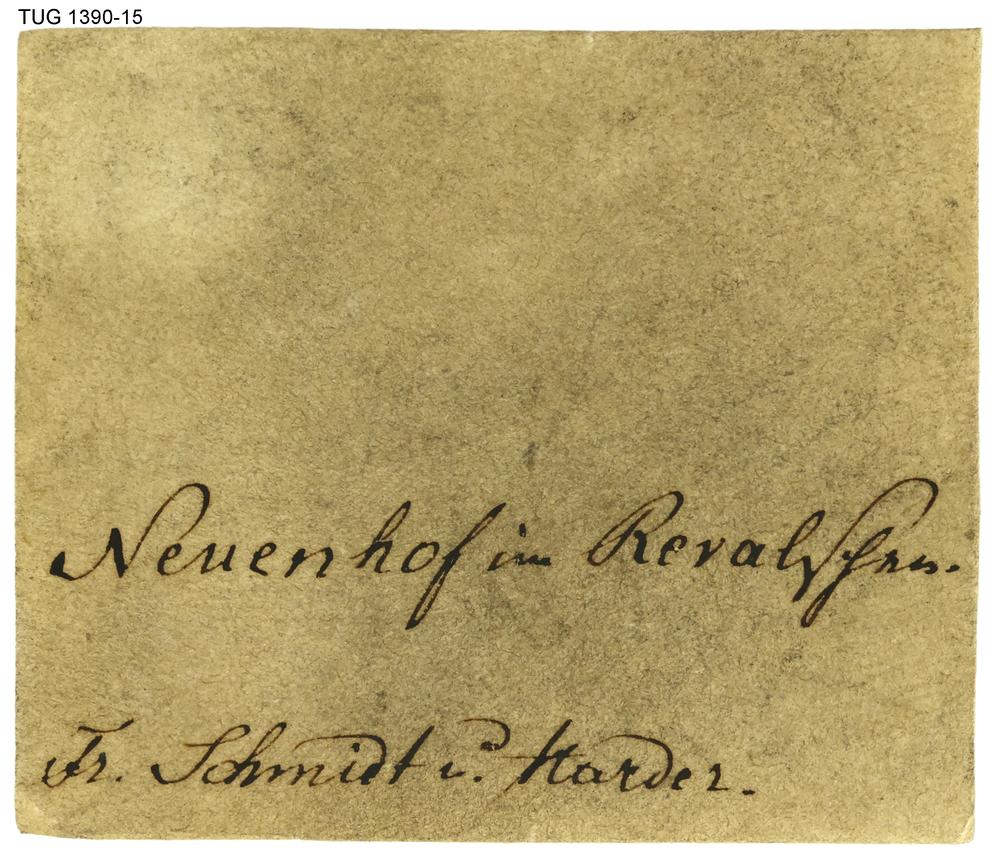 TUG 1390-15
Neuenhof im Revalschen.
Fr. Schmidt u. Harder.